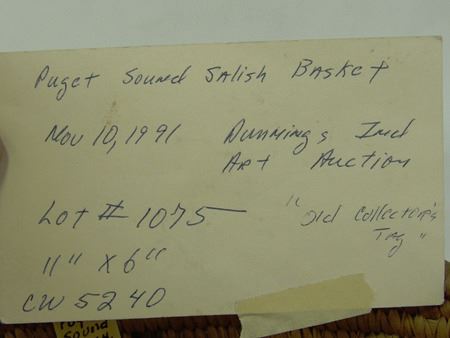 Puget Sound Salish Basket
Nov 10, 1991 Dunning's Ind
Art Auction
Lot # 1075 "Old Collector's
Tag"
11" x 6"
CW 5240
Sound